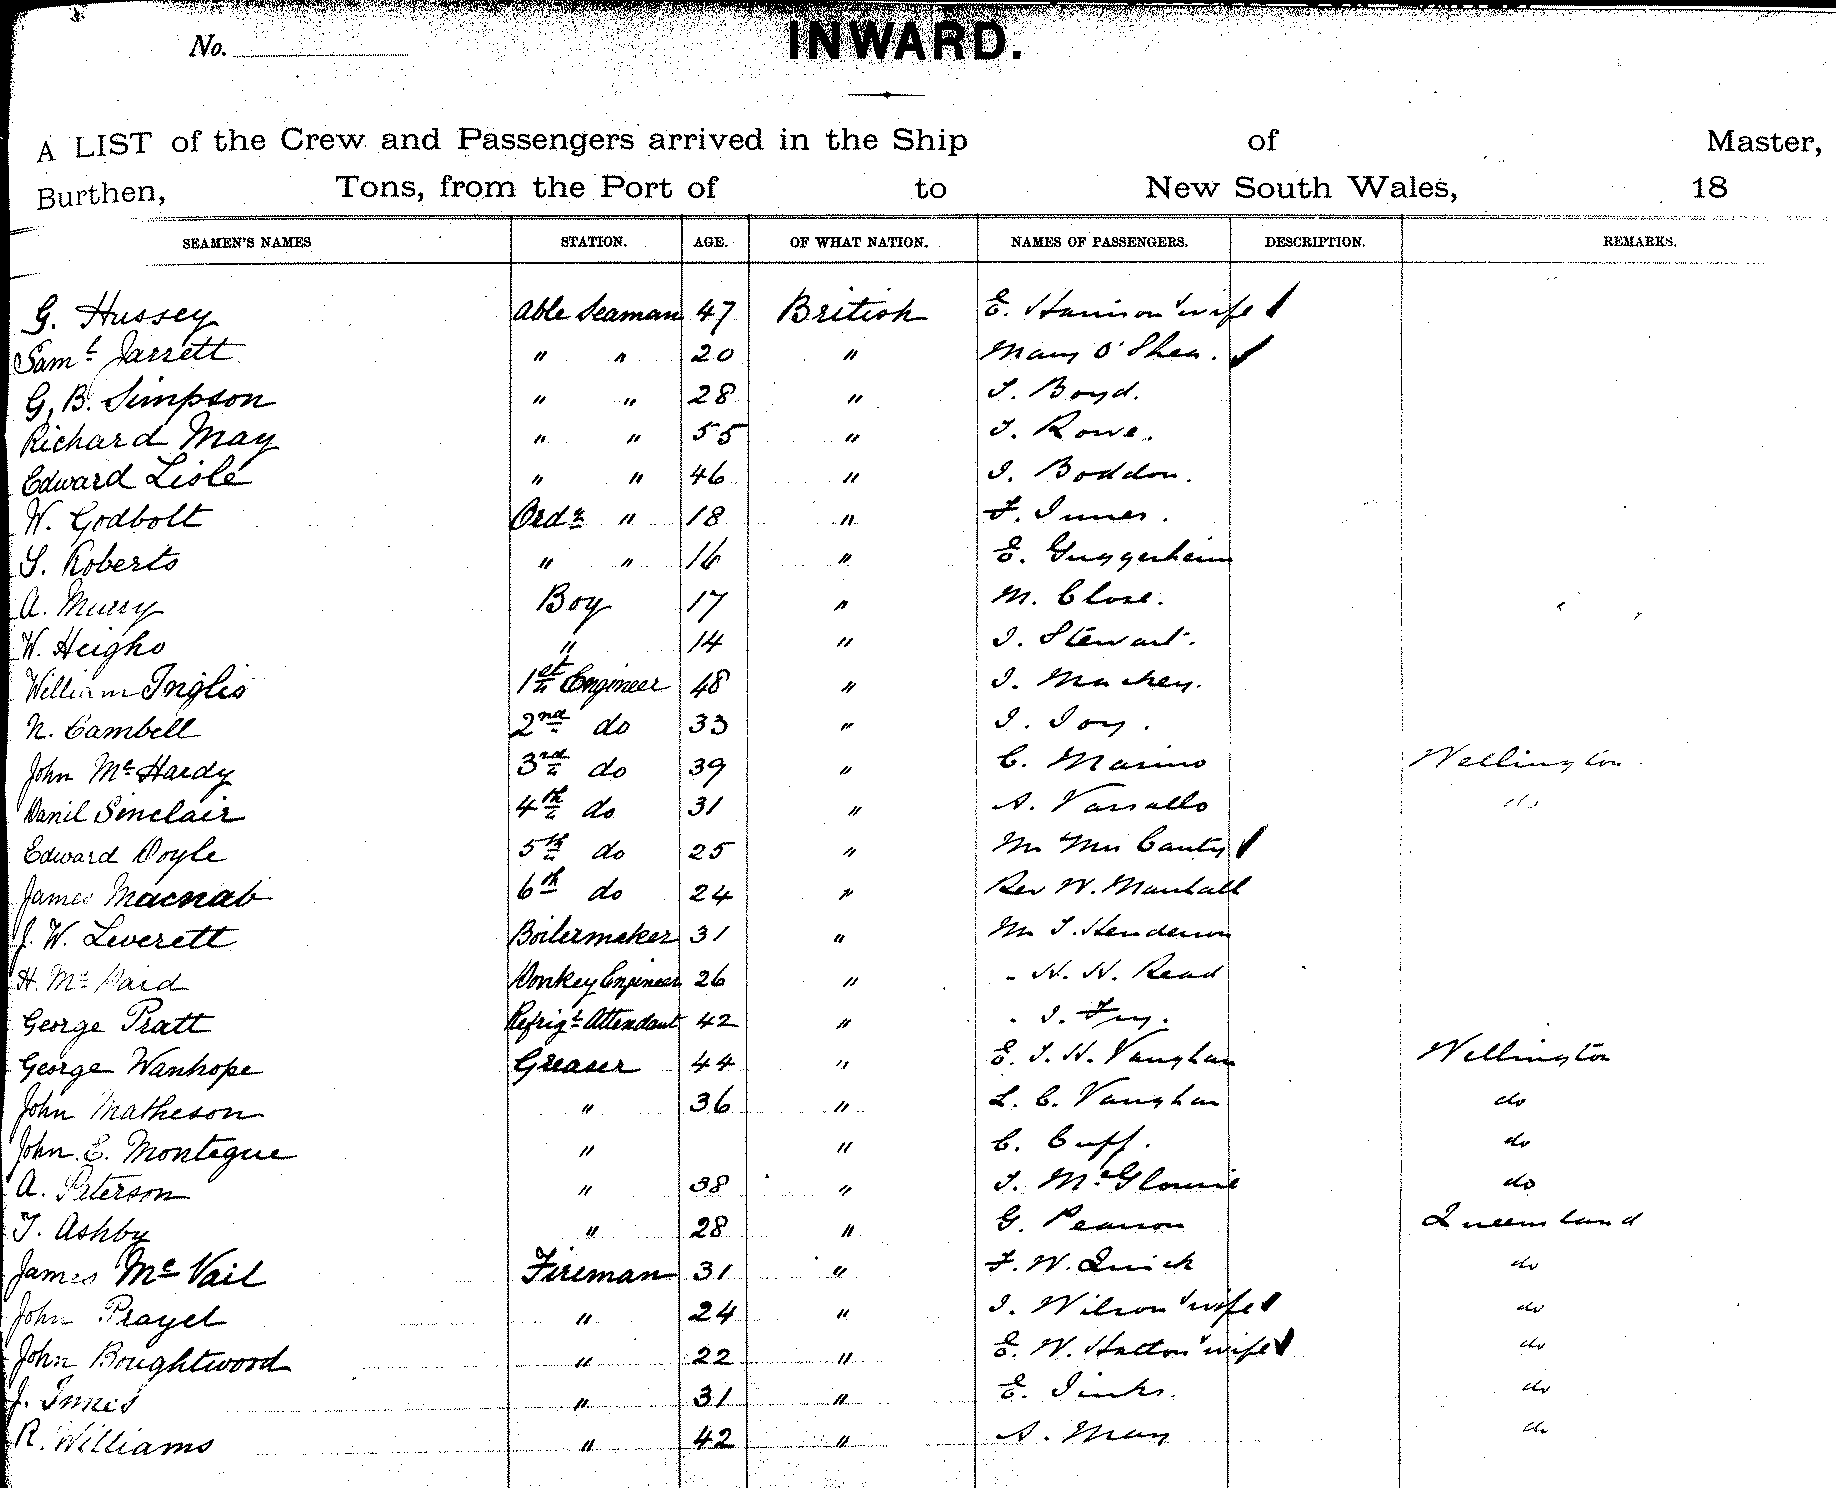 No.
INWARD.
A LIST of the Crew and Passengers arrived in the Ship of Master,
Burthen, Tons, from the Port of to New South Wales, 18
SEAMEN'S NAMES STATION. AGE. OF WHAT NATION. NAMES OF PASSENGERS. DESCRIPTION. REMARKS.
G. Hussey Able Seaman 47 British E. Harrison & wife
Saml Jarrett " " 20 " Mary O'Shea.
G. B. Simpson " " 28 " J. Boyd.
Richard May " " 55 " J. Rowe.
Edward Lisle " " 46 " J. Boddon.
W. Godbolt Ordy " 18 " F. Innes.
S. Roberts " " 16 " E. Guggerheim
A. Murry Boy 17 " M. Close.
W. Heigho " 14 " J. Stewart.
William Inglis 1st Engineer 48 " J. Mackey.
N. Cambell 2nd do 33 " J. Joy.
John McHardy 3rd do 39 " C. Marino Wellington
Danil Sinclair 4th do 31 " A. Vassallo do
Edward Doyle 5th do 25 " Mr Mrs Canty
James Macnab 6th do 24 " Rev W. Marshall
J. W. Leverett Boilermaker 31 " Mr J. Henderson
H. Mc Donkey Engineer 26 " " H. H. Read
George Pratt Refrigt Attendant 42 " " J. Fry.
George Wanhope Greaser 44 " E. J. H. Vaughan Wellington
John Matheson " 36 " L. C. Vaughan do
John E. Montegue " " C. Cuff. do
A. Paterson " 38 " J. McGlowie do
T. Ashby " 28 " G. Pearson Queensland
James McVail Fireman 31 " F. W. Quick do
John Prayel " 24 " J. Wilson & wife do
John Boughtwood " 22 " E. W. Hatton & wife do
J. Innes " 31 " E. Jinks. do
R. Williams " 42 " A. May do